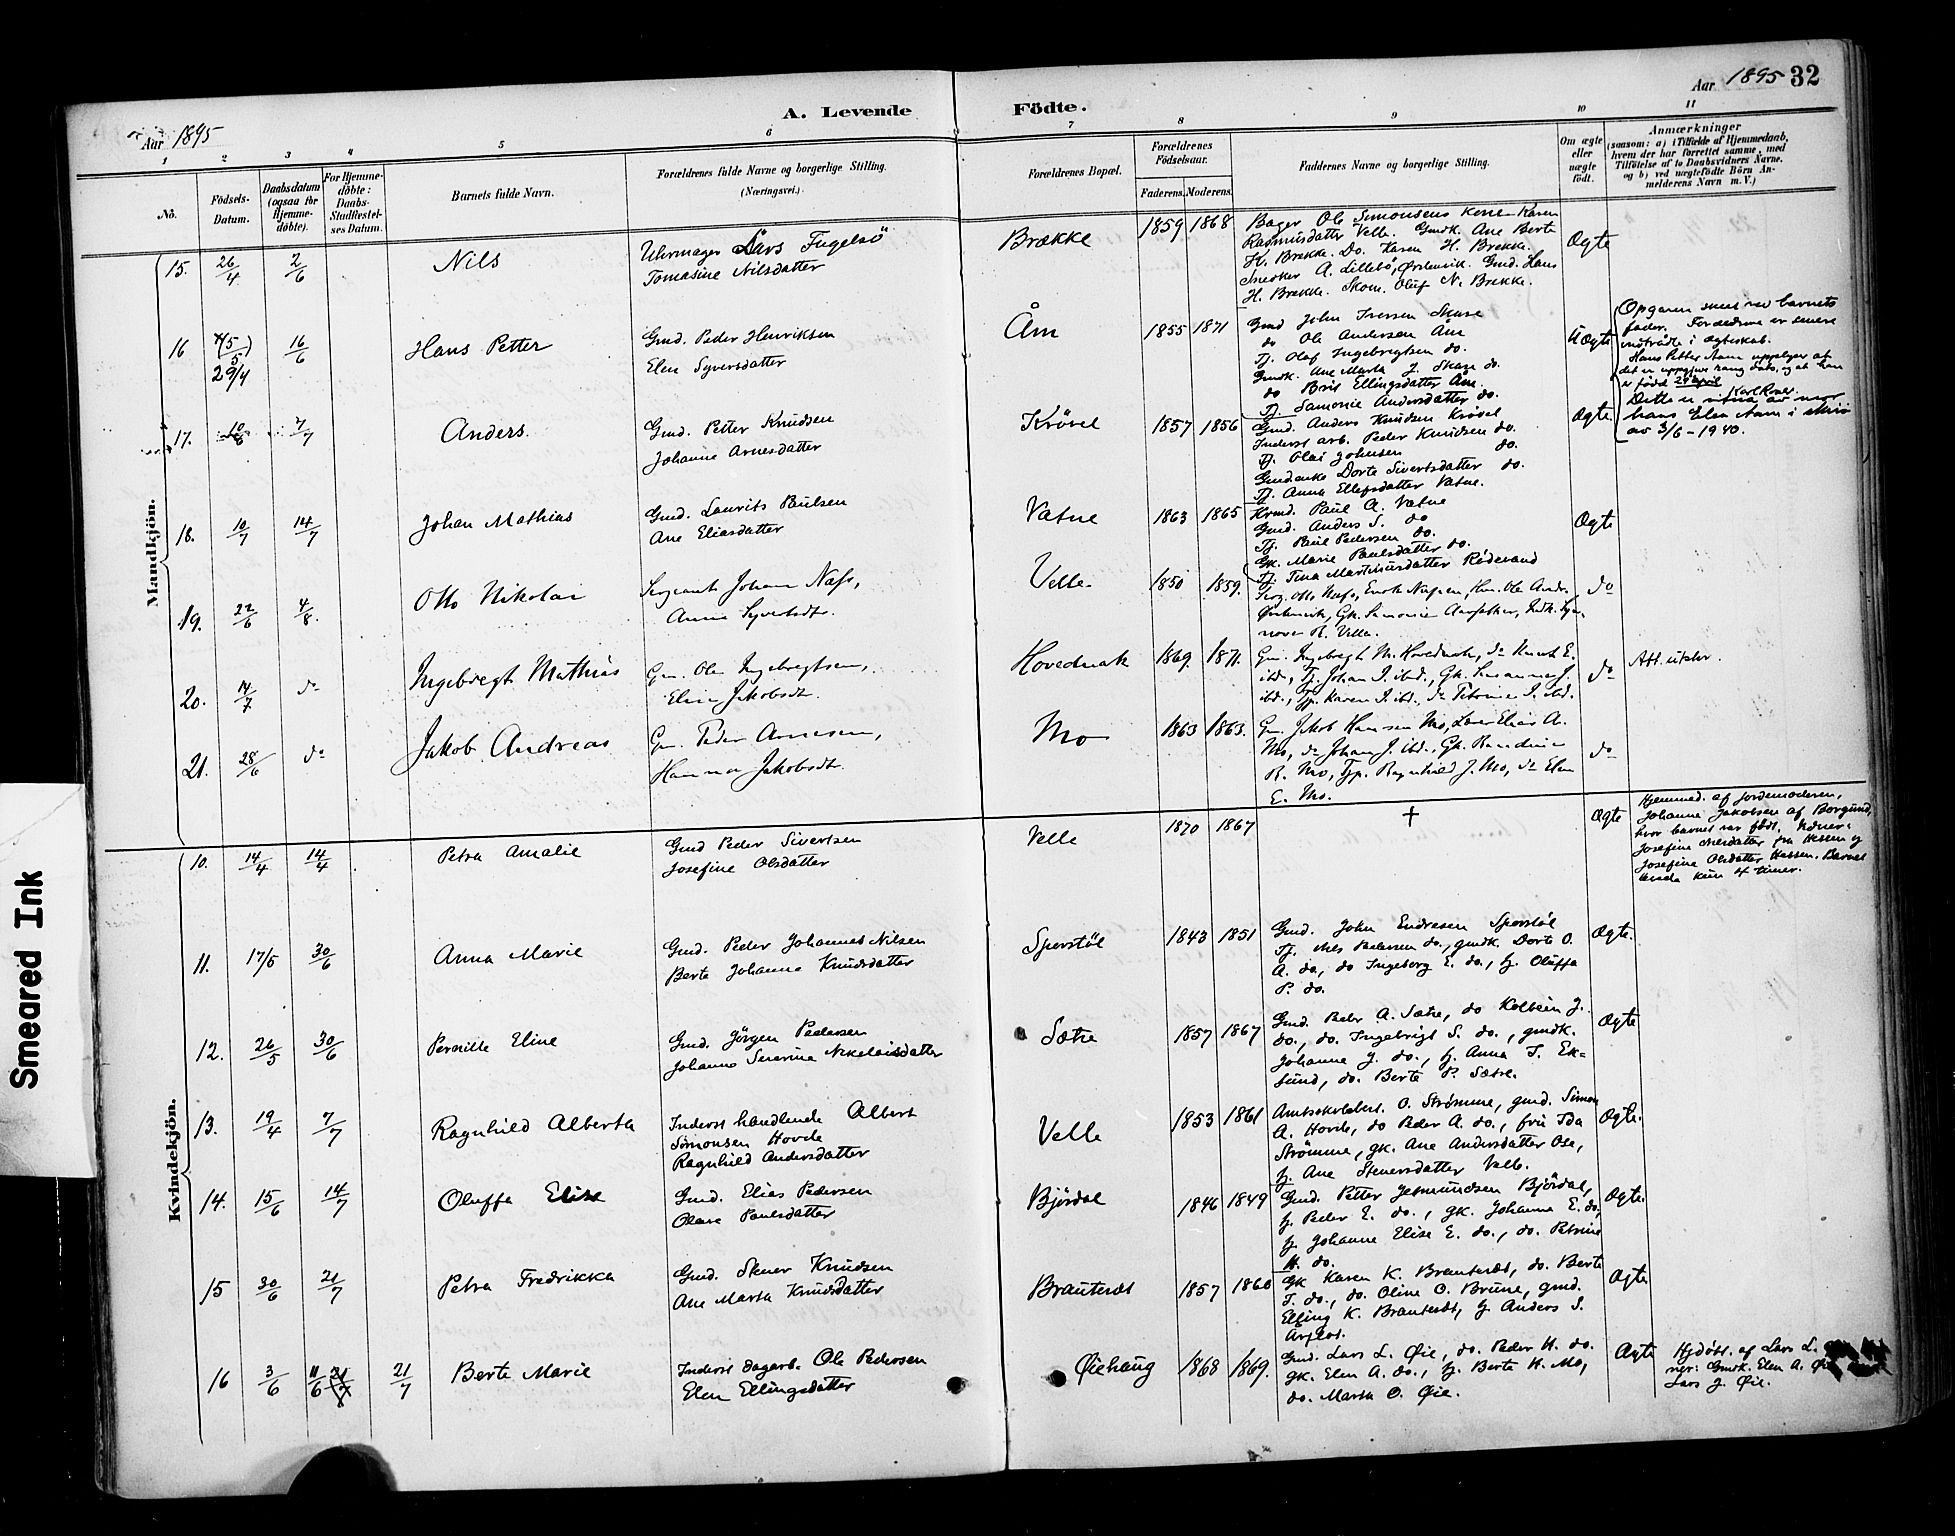 Aar 1895
A. Levende
Födte.
Aar 1895 32
1 2 3 4 5 6 7 8 9 10 11
Nô.
Födsels-
Datum.
Daabsdatum
(ogsaa for
Hjemme-
døbte).
For Hjemme-
døbte:
Daabs-
Stadfæstel-
ses Datum.
Barnets fulde Navn.
Forældrenes fulde Navne og borgerlige Stilling.
(Næringsvei.)
Forældrenes Bopæl.
Forældrenes
Födselsaar.
Faderens. Moderens.
Faddernes Navne og borgerlige Stilling.
Om ægte
eller
uægte
født.
Anmærkninger
(saasom: a) i Tilfælde af Hjemmedaab,
hvem der har forrettet samme, med
Tilføielse af to Daabsvidners Navne.
og b) ved uægtefødte Börn An-
melderens Navn m. V.)
Mandkjön.
15. 26/4 2/6 Nils
Uhrmager Lars Fugelsö
Tomasine Nilsdatter
Brække 1859 1868
Bager Ole Simonsens kone Karen
Rasmusdatter Velle. Gmdk. Ane Berte
H. Brekke. Do. Karen H. Brekke.
Snedker A. Lillebö, Ørstenvik. Gmd. Hans
H. Brekke. Skom. Oluf N. Brekke.
Ægte
16 5/5 29/4 16/6 Hans Petter
Gmd. Peder Henriksen
Elen Syversdatter
Åm 1855 1871
Gmd John Iversen Skare
do Ole Andersen Åm
Tj. Olaf Ingebregtsen do.
Gmdk. Ane Marta J. Skare do.
do Brit Ellingsdatter Åm
Tj. Samonie Andersdatter do.
Uægte
Opgaven skeet ved barnets
fader. Forældrene er senere
indtrådte i ægteskab.
Hans Petter Aam oppgiver at
er född 29 april
Karl Roald
hans Elen Aam i skriv
av 3/6-1940.
17. 10/6 7/7 Anders.
Gmd. Petter Knudsen
Johanne Arnesdatter
Krövel 1857 1856
Gmd. Anders Knudsen Krövel
Inderst arb. Peder Knudsen do.
Tj. Olai Johnsen do.
Gmdenke Dorte Sivertsdatter do.
Tj. Anna Ellefsdatter Vatne.
Ægte
18. 10/7 14/7 Johan Mathias
Gmd. Laurits Paulsen
Ane Eliasdatter
Vatne 1863 1865
Krmd. Paul A. Vatne
Gmd. Anders S. do
Tj. Paul Pedersen do.
Gk. Marie Paulsdatter do.
Tj. Tina Martinusdatter Rödesand
Ægte
19. 22/6 4/8. Otto Nikolai
Sergeant Johan Næss,
Anne Syvertsdt.
Velle 1850 1859.
do
20. 14/7 do Ingebregt Mathias
Gm. Ole Ingebregtsen,
Elen Jakobsdt.
Hovednak 1869. 1871.
Gm. Ingebregt M. Hovednak, do Knut E.
ibd., Tj. Johan I. ibd., Gk. Susanna J.
ibd., Tjp. Karen I. ibd., do Petrine I. ibd.
do
Att. utskr.
21. 28/6 do Jakob Andreas
Gm. Peder Arnesen,
Hanna Jakobsdt.
Mo 1863 1863.
Gm. Jakob Hansen Mo, Lærer Elias A.
Mo, do Johan J. ibd., Gk. Randine
R. Mo, Tjp. Ragnhild J. Mo, do Elen
E. Mo.
do
Kvindekjön.
10. 14/4 14/4 Petra Amalie
Gmd Peder Sivertsen
Josefine Olsdatter
Velle 1870 1867 † Ægte
Hjemmed. af jordemoderen,
Johanne Jakobsen af Borgund,
hvor barnet var født. Vidner:
Josefine Nilsdatter fra Hessen og
Josefine Olsdatter Hessen. Barnet
levede kun 4 timer.
11. 17/5 30/6 Anna Marie
Gmd. Peder Johannes Nilsen
Berte Johanna Knudsdatter
Sperstöl 1843 1851
Gmd. John Endresen Sperstöl
Tj. Nils Pedersen do., gmdk. Dorte O.
A. do, do Ingeborg E. do., tj. Oluffa
P. do.
Ægte.
12. 26/5 30/6 Pernille Eline
Gmd. Jörgen Pedersen
Johanne Severine Nikolaisdatter
Sætre 1857 1867
Gmd. Peder A. Sætre, do Kolbein J.
do., do. Ingebrigt S. do., gmdk.
Johanne J. do., tj. Anna T. Ek-
sund, do. Berte P. Sætre.
Ægte
13. 19/4 7/7 Ragnhild Alberta
Inderst handlende Albert
Simonsen Hovde
Ragnhild Andersdatter
Velle 1853 1861
Amtsskolebest. O. Strömme, gmd. Simon
A. Hovde, do Peder A. do., frue Ida
Strömme, gk. Ane Andersdatter Ose,
tj. Ane Stenersdatter Velle.
Ægte.
14. 15/6 14/7 Oluffa Elise
Gmd. Elias Pedersen
Olave Paulsdatter
Björdal 1846 1849
Gmd. Petter Jetmundsen Björdal,
tj. Peder E. do., gk. Johanne E. do,
tj. Johanne Elise E. do., do. Petrine
H. do.
Ægte.
15 30/6 21/7 Petra Fredrikka
Gmd. Stener Knudsen
Ane Marta Knudsdatter
Brautesæt 1857 1860
Gk Karen K. Brautesæt, do. Berte
T. do., do. Oline O. Brune, gmd.
Elling K. Brautesæt, tj Anders S.
Årflot.
Ægte
16 3/6 11/6 21/7 21/7 Berte Marie
Inderst dagarb. Ole Pedersen
Elen Ellingsdatter
Øiehaug 1868 1869.
Gmd. Lars L. Øie, do. Peder H. do.
gk. Elen A. do., tj. Berte K. Mo,
do. Marta O. Øie.
Ægte
Hjdöbt. af Lars L.
ner: Gmdk. Elen A. Øie
Lars J. Øie.
Smeared Ink